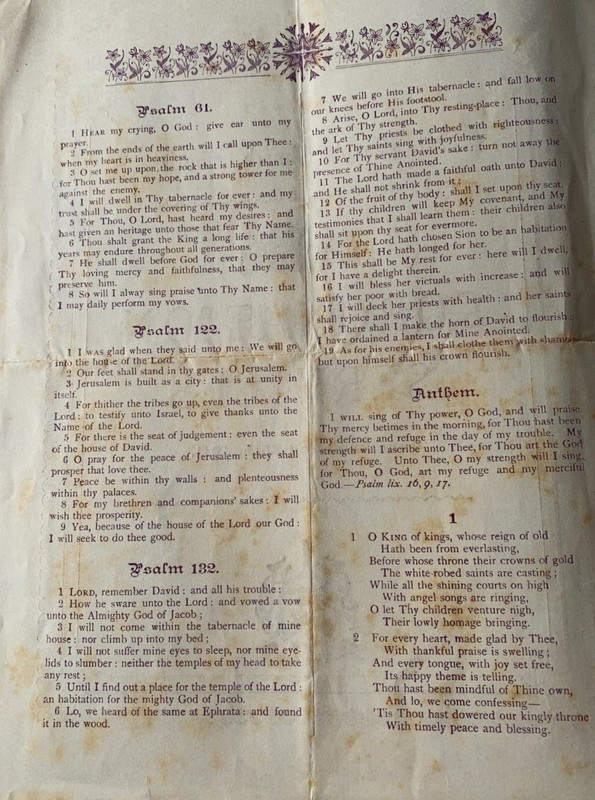 Psalm 61.
1 HEAR my crying, O God : give ear unto my
prayer.
2 From the ends of the earth will I call upon Thee :
when my heart is in heaviness.
3 O set me up upon the rock that is higher than I :
for Thou hast been my hope, and a strong tower for me
against the enemy.
4 I will dwell in Thy tabernacle for ever : and my
trust shall be under the covering of Thy wings.
5 For Thou, O Lord, hast heard my desires : and
hast given an heritage unto those that fear Thy Name.
6 Thou shalt grant the King a long life : that his
years may endure throughout all generations.
7 He shall dwell before God for ever : O prepare
Thy loving mercy and faithfulness, that they may
preserve him.
8 So will I alway sing praise unto Thy Name : that
I may daily perform my vows.
Psalm 122.
1 I WAS glad when they said unto me : We will go
into the house of the Lord.
2 Our feet shall stand in thy gates : O Jerusalem.
3 Jerusalem is built as a city : that is at unity in
itself.
4 For thither the tribes go up, even the tribes of the
Lord : to testify unto Israel, to give thanks unto the
Name of the Lord.
5 For there is the seat of judgement : even the seat
of the house of David.
6 O pray for the peace of Jerusalem : they shall
prosper that love thee.
7 Peace be within thy walls : and plenteousness
within thy palaces.
8 For my brethren and companions' sakes : I will
wish thee prosperity.
9 Yea, because of the house of the Lord our God :
I will seek to do thee good.
Psalm 132.
1 LORD, remember David : and all his trouble :
2 How he sware unto the Lord : and vowed a vow
unto the Almighty God of Jacob ;
3 I will not come within the tabernacle of mine
house : nor climb up into my bed ;
4 I will not suffer mine eyes to sleep, nor mine eye-
lids to slumber : neither the temples of my head to take
any rest ;
5 Until I find out a place for the temple of the Lord :
an habitation for the mighty God of Jacob.
6 Lo, we heard of the same at Ephrata : and found
it in the wood.
7 We will go into His tabernacle : and fall low on
our knees before His footstool.
8 Arise, O Lord, into Thy resting-place : Thou, and
the ark of Thy strength.
9 Let Thy priests be clothed with righteousness :
and let Thy saints sing with joyfulness.
10 For Thy servant David's sake : turn not away the
presence of Thine Anointed.
11 The Lord hath made a faithful oath unto David :
and He shall not shrink from it ;
12 Of the fruit of thy body : shall I set upon thy seat.
13 If thy children will keep My covenant, and My
testimonies that I shall learn them : their children also
shall sit upon thy seat for evermore.
14 For the Lord hath chosen Sion to be an habitation
for Himself : He hath longed for her.
15 This shall be My rest for ever : here will I dwell,
for I have a delight therein.
16 I will bless her victuals with increase : and will
satisfy her poor with bread.
17 I will deck her priests with health : and her saints
shall rejoice and sing.
18 There shall I make the horn of David to flourish :
I have ordained a lantern for Mine Anointed.
19 As for his enemies, I shall clothe them with shame :
but upon himself shall his crown flourish.
Anthem.
I WILL sing of Thy power, O God, and will praise
Thy mercy betimes in the morning, for Thou hast been
my defence and refuge in the day of my trouble. My
strength will I ascribe unto Thee, for Thou art the God
of my refuge. Unto Thee, O my strength will I sing,
for Thou, O God, art my refuge and my merciful
God.—Psalm lix. 16, 9, 17.
1
1 O KING of kings, whose reign of old
Hath been from everlasting,
Before whose throne their crowns of gold
The white-robed saints are casting ;
While all the shining courts on high
With angel songs are ringing,
O let Thy children venture nigh,
Their lowly homage bringing.
2 For every heart, made glad by Thee,
With thankful praise is swelling ;
And every tongue, with joy set free,
Its happy theme is telling.
Thou hast been mindful of Thine own,
And lo, we come confessing—
'Tis Thou hast dowered our kingly throne
With timely peace and blessing.